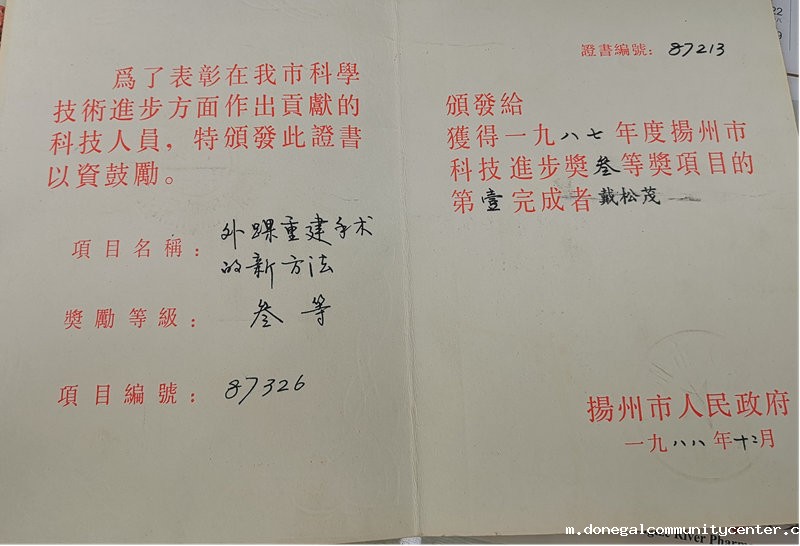 爲了表彰在我市科學
技術進步方面作出貢獻的
科技人員，特頒發此證書
以資鼓勵。
項目名稱：外踝重建手术
的新方法
獎勵等級：叁等
項目編號：87326
證書編號：87213
頒發給
獲得一九八七年度揚州市
科技進步獎叁等獎項目的
第壹完成者戴松茂
揚州市人民政府
一九八八年十二月
River Pharm
m.donegalcommunitycenter.c